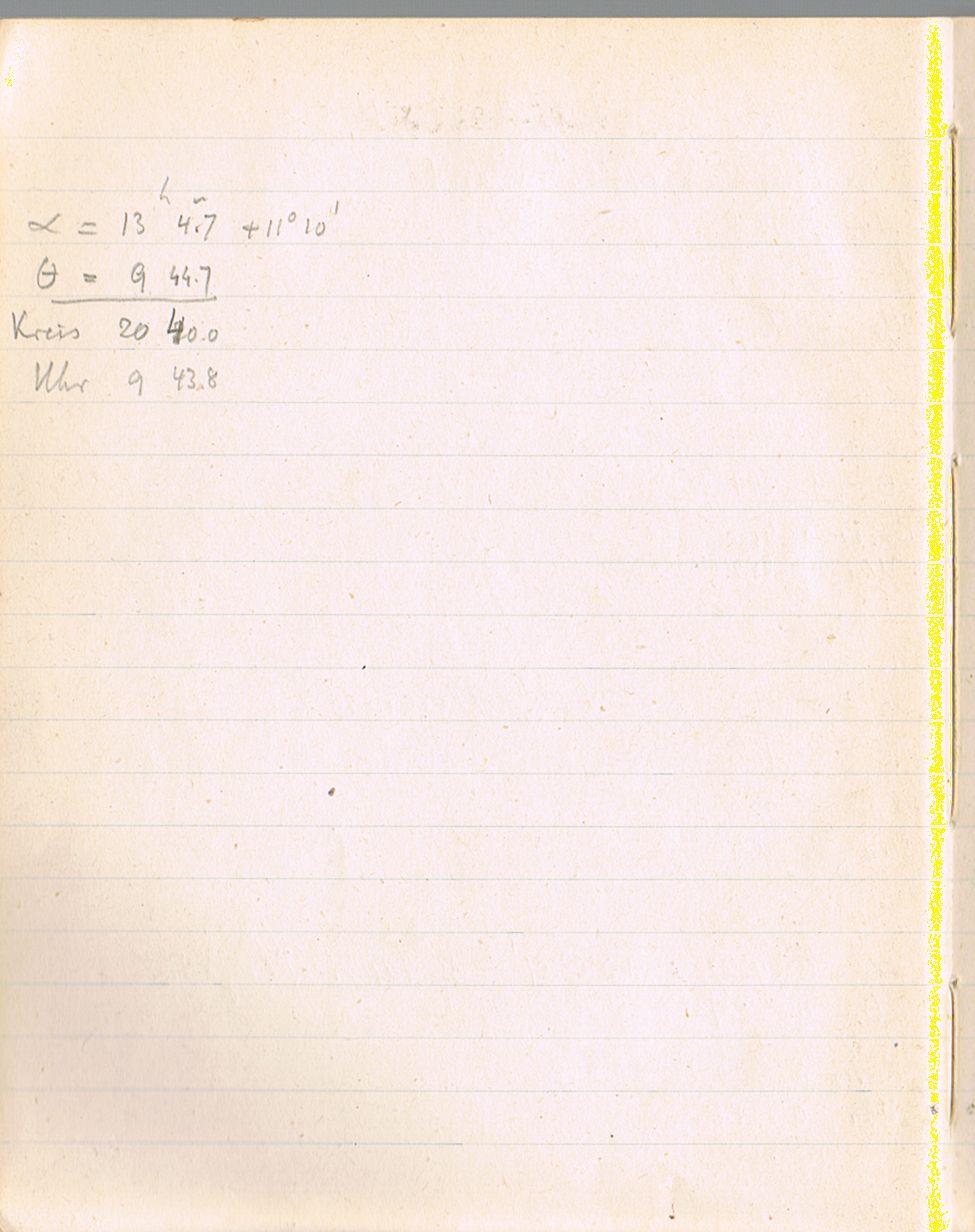 α = 13ʰ 4.7ᵐ +11° 10'
θ = 9 44.7
Kreis 20 40.0
Uhr 9 43.8